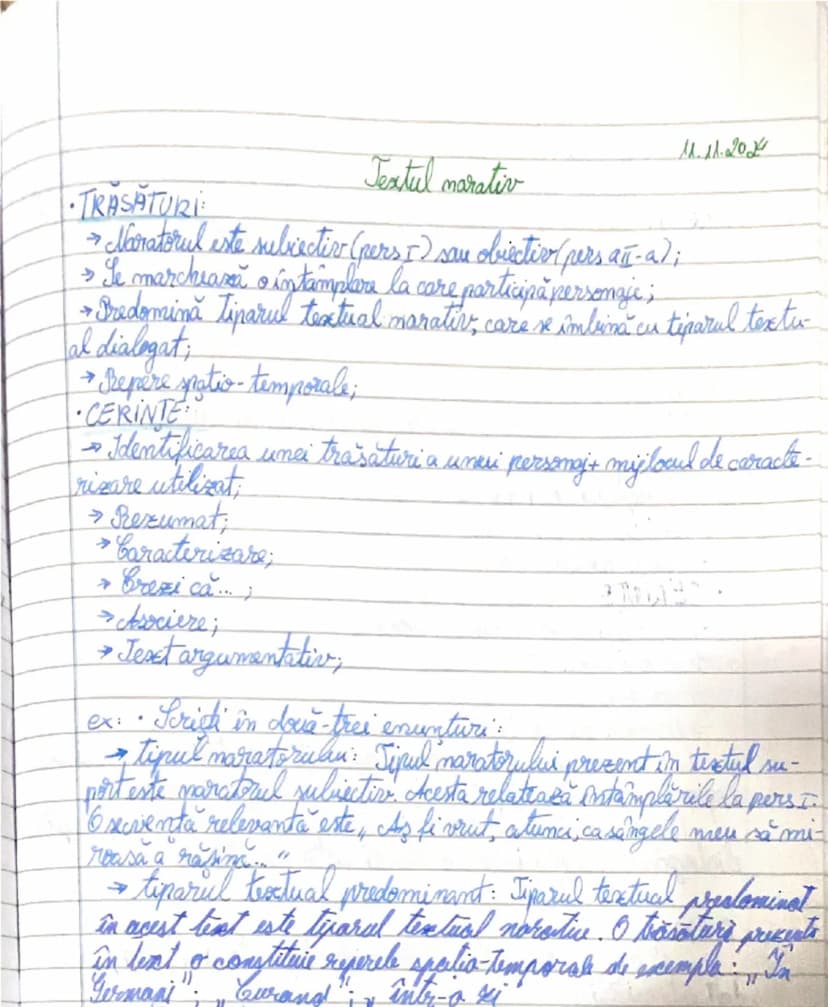 11.11.2024
Textul narativ
• TRĂSĂTURI:
→ Naratorul este subiectiv (pers I) sau obiectiv (pers aII-a);
→ Se marchează o întâmplare la care participă personaje;
→ Predomină Tiparul textual narativ, care se îmbină cu tiparul textu-
al dialogat;
→ Repere spațio-temporale;
• CERINȚE:
→ Identificarea unei trăsături a unui personaj + mijlocul de caracte-
rizare utilizat;
→ Rezumat;
→ Caracterizare;
→ Crezi că... ;
→ Asociere;
→ Text argumentativ;
ex: • Scrieți în două-trei enunțuri:
→ tipul naratorului: Tipul naratorului prezent în textul su-
port este naratorul subiectiv. Acesta relatează întâmplările la pers I.
O secvență relevantă este „Aș fi vrut, atunci, ca sângele meu să mi-
roasă a rășină..."
→ tiparul textual predominant: Tiparul textual predominat
în acest text este tiparul textual narativ. O trăsătură prezentă
în text o constituie reperele spatio-temporale de exemplu: „În
Germani"; „Curand"; „într-o zi